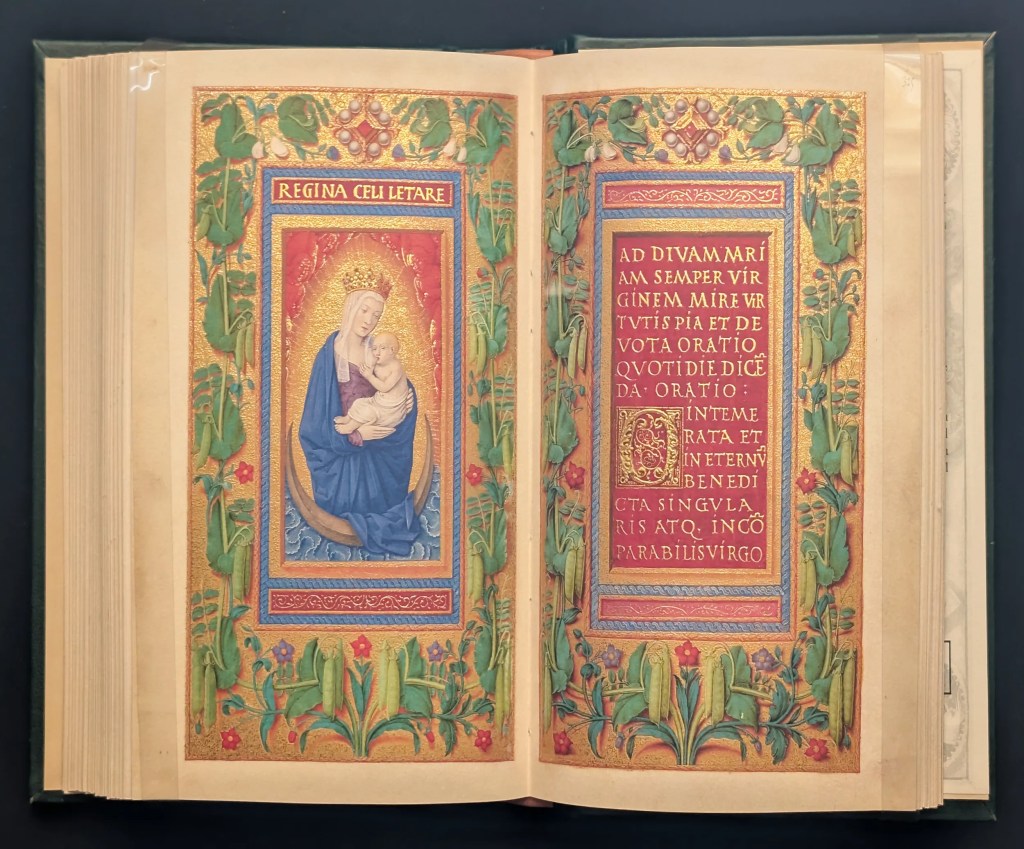 REGINA CELI LETARE
AD DIVAM MARI
AM SEMPER VIR
GINEM MIRE VIR
TVTIS PIA ET DE
VOTA ORATIO
QVOTIDIE DICE̅
DA· ORATIO :
O INTEME
RATA ET
IN ETERNV̅
BENEDI
CTA SINGVLA
RIS ATQ. INCO̅
PARABILIS VIRGO